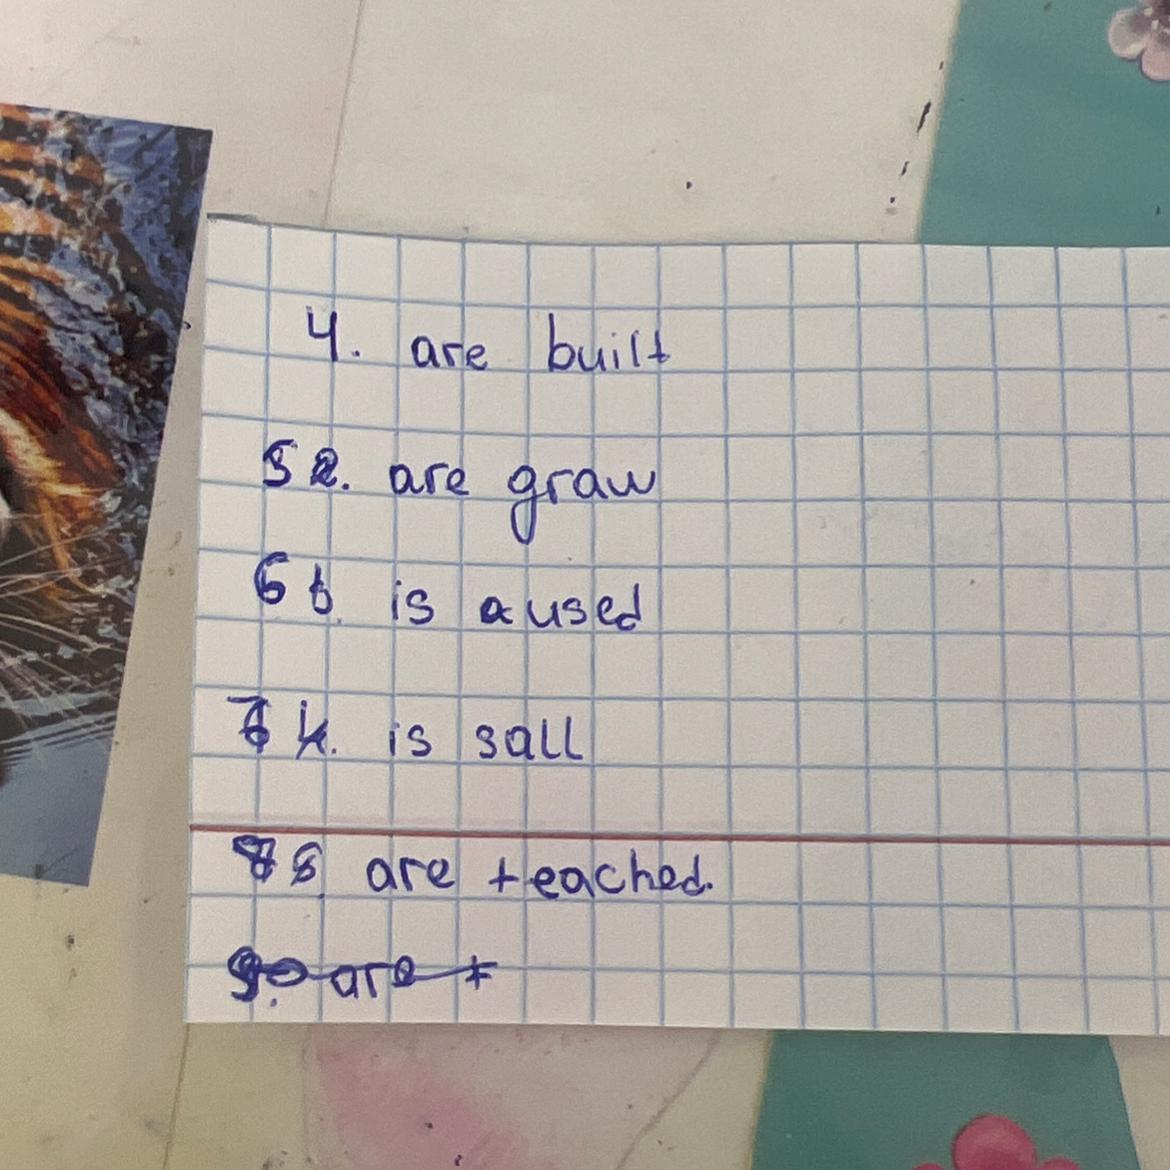 4. are built
5 2. are graw
6 b. is aused
7 k. is sall
8 8. are teached.
9. are t